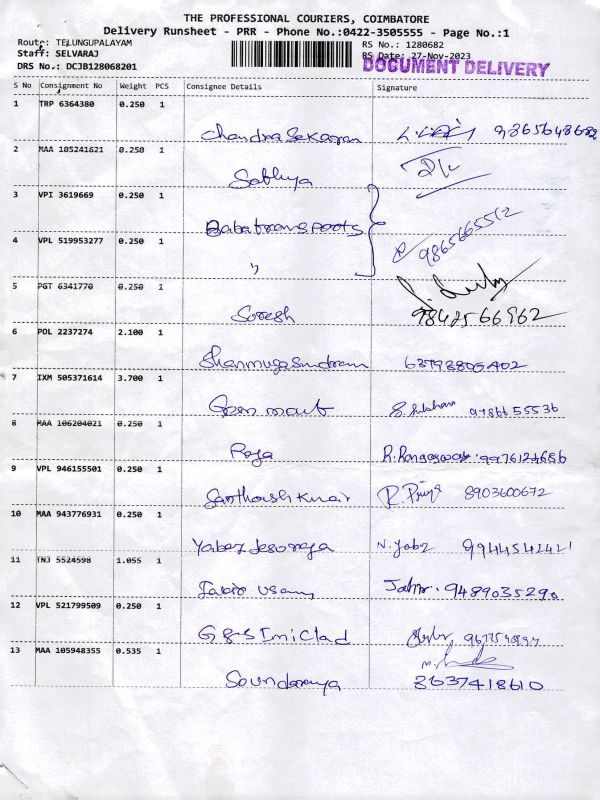 THE PROFESSIONAL COURIERS, COIMBATORE
Delivery Runsheet - PRR - Phone No.:0422-3505555 - Page No.:1
Route: TELUNGUPALAYAM RS No.: 1280682
Staff: SELVARAJ RS Date: 27-Nov-2023
DRS No.: DCJB128068201 DOCUMENT DELIVERY
S No Consignment No Weight PCS Consignee Details Signature
1 TRP 6364380 0.250 1
Chandrasekaran 9865648682
2 MAA 105241621 0.250 1
Sabhya
3 VPI 3619669 0.250 1
Babatransports 9865665512
4 VPL 519953277 0.250 1
"
5 PGT 6341770 0.250 1
Soresh 9842566962
6 POL 2237274 2.100 1
Shanmugasundram
7 IXM 505371614 3.700 1
8 MAA 106204021 0.250 1
Raja
9 VPL 946155501 0.250 1
Santhoshkumar R. Priya 8903600672
10 MAA 943776931 0.250 1
Yabez Jesuraja N. Yabz
11 TNJ 5524598 1.055 1
9489035290
12 VPL 521799509 0.250 1
13 MAA 105948355 0.535 1
Soundarya 8637418610